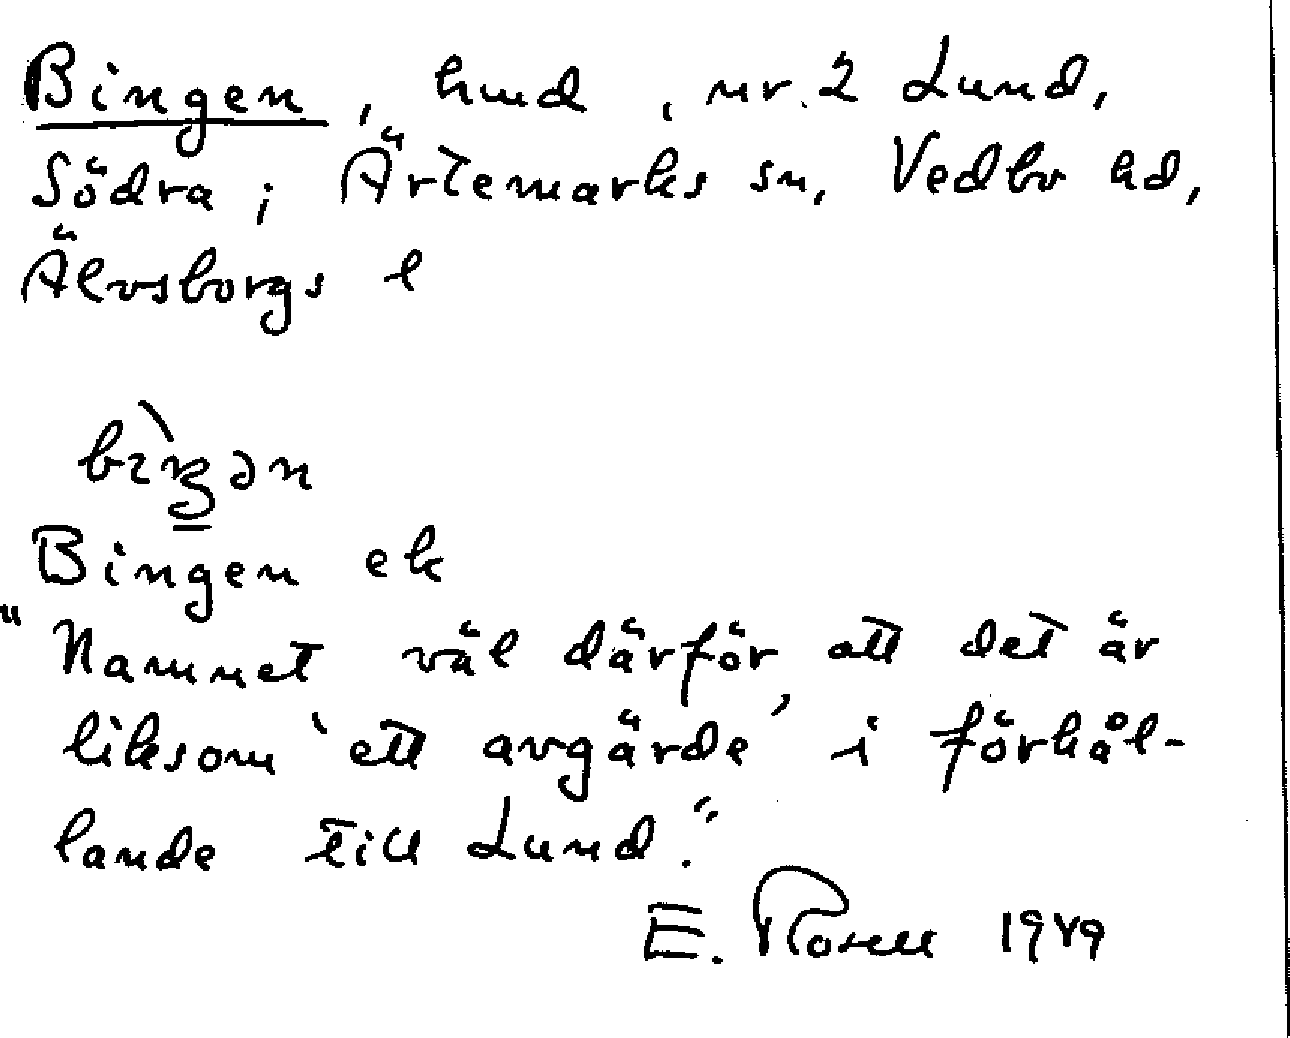 Bingen, hmd, nr. 2 Lund,
Södra; Ärtemarks sn, Vedbo hd,
Älvsborgs l
Bingen ek
"Namnet väl därför att det är
liksom 'ett avgärde' i förhål-
lande till Lund."
E. Rosell 1949